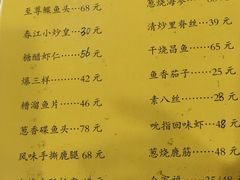 至尊鲽鱼头……68元
春江小炒皇……30元
糖醋虾仁……56元
爆三样……42元
糟溜鱼片……46元
葱香碟鱼头…78元
风味手撕鹿腿 68元
葱烧海参
清炒里脊丝…39元
干烧昌鱼……45元
鱼香茄子……25元
素八丝……28元
吮指回味虾…48元
葱烧鹿筋……48元